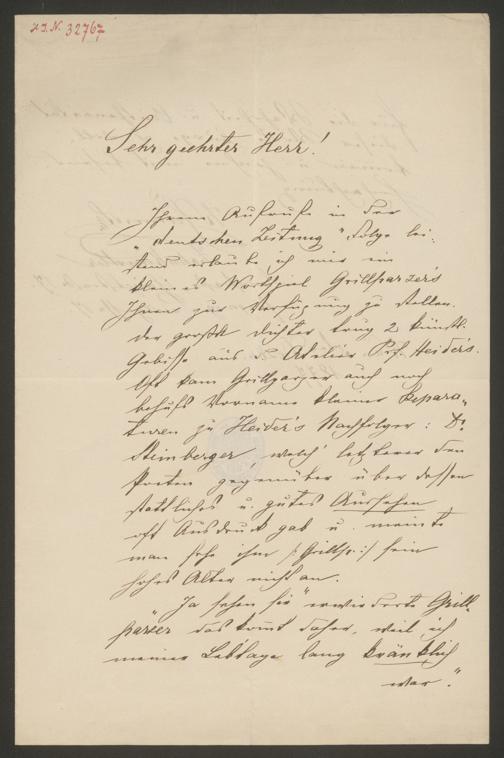 H.I.N. 32767
Sehr geehrter Herr!
Ihrem Aufrufe in der
"deutschen Zeitung" Folge lei-
stend erlaube ich mir ein
kleines Wortspiel Grillparzer's
Ihnen zur Verfügung zu stellen.
Der große Dichter trug 2 künstl.
Gebisse aus d. Atelier Prf. Heider's.
Oft kam Grillparzer auch noch
behufs Vorname kleiner Repara-
turen zu Heider's Nachfolger: Dr
Steinberger, welch' letzterer dem
Poeten gegenüber über dessen
stattliches u. gutes Aussehen
oft Ausdruck gab u. meinte
man sehe ihm /: Grillp :/ sein
hohes Alter nicht an.
"Ja sehen Sie" erwiderte Grill-
parzer "das kommt daher, weil ich
meiner Lebtage lang kränklich
war."